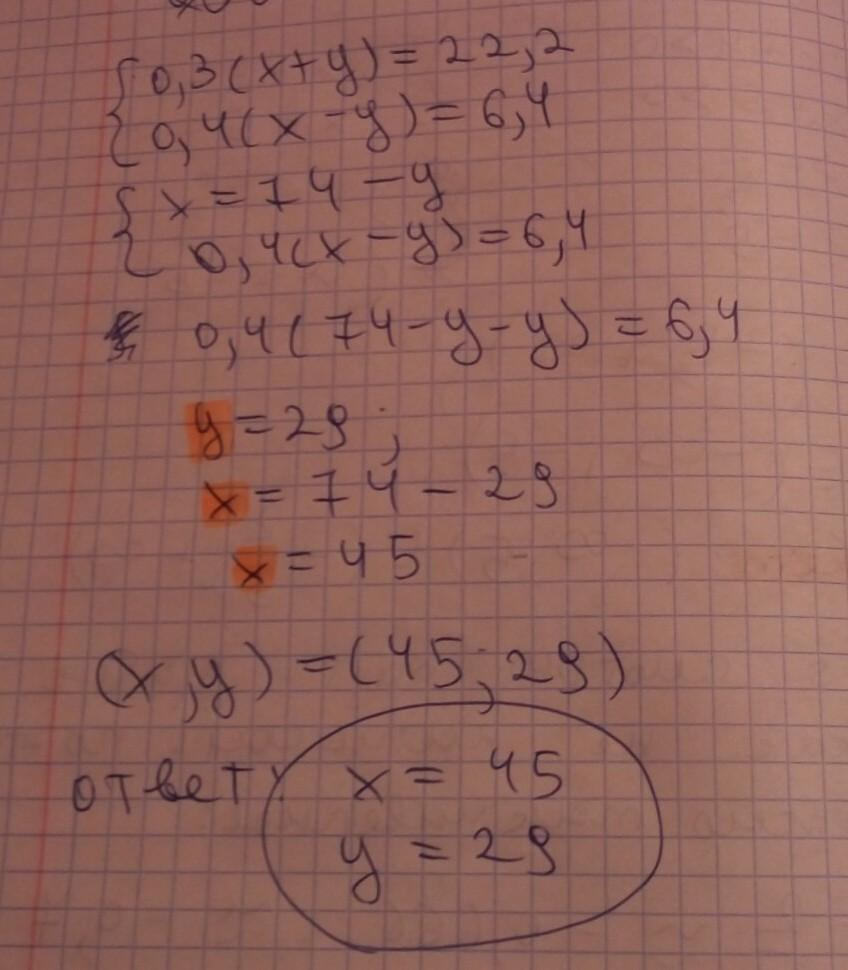 {0,3(x+y)=22,2
0,4(x-y)=6,4
{x=74-y
0,4(x-y)=6,4
0,4(74-y-y)=6,4
y=29;
x=74-29
x=45
(x,y)=(45;29)
ответ: x=45
y=29